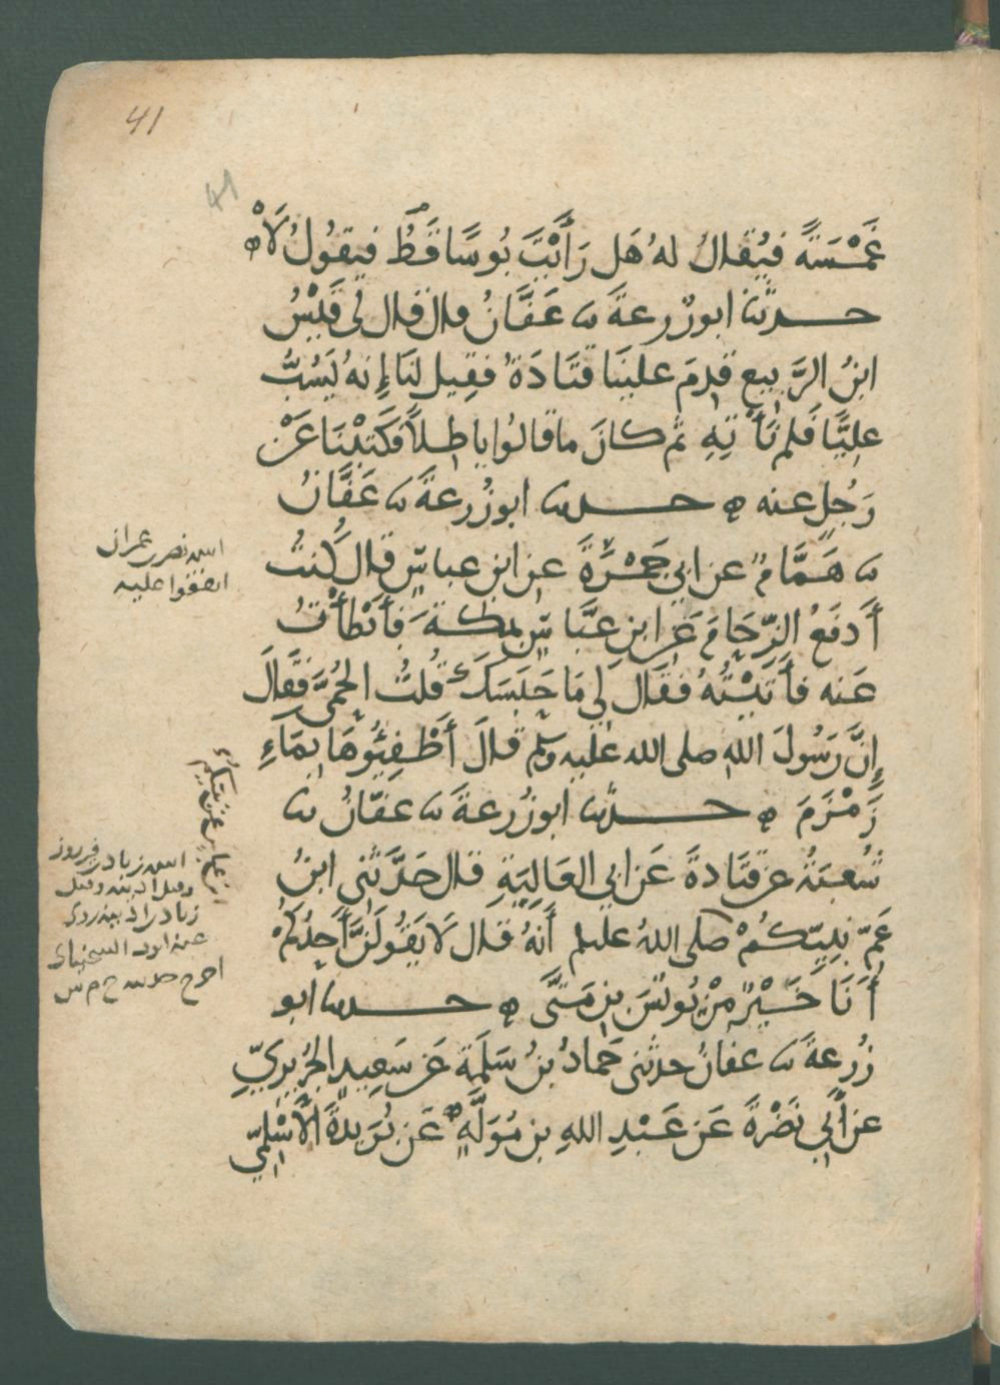 41
41
غَمْسَةً فيُقالُ لهُ هَل رَأَيْتَ بُوسًا قَطُّ فيقُولُ لَا ه
حدثنا ابو زُرعةَ نا عَفَّانُ قال قال لي قَيْسُ
ابنُ الرَّبيعِ قدِمَ علينَا قتَادَةُ فقِيل لنَا إِنهُ يَسُبُّ
عليًّا فَلم نَأْتِهِ ثم كانَ ما قالوا باطِلاً فكَتَبْنَا عَنْ
رَجُلٍ عنه ه حدثنا ابو زُرعةَ نا عَفَّانُ
نا هَمَّامٌ عن ابي جَمْرَةَ عن ابن عباسٍ قال كُنتُ
أَدفَعُ الزِّحَامَ عَنِ ابنِ عبَّاسٍ بمكةَ فأَبْطأْتُ
عَنه فأَتَيْتُهُ فقَال لي مَا حَبَسَكَ قُلتُ الحُمَّى فقَالَ
إِنَّ رَسُولَ اللهِ صلى الله عليه وسلم قالَ أَطْفِئُوهَا بمَاءِ
زَمْزَمَ ه حدثنا ابو زُرعةَ نا عفّانُ نا
شُعبَةُ عن قتَادةَ عَن ابي العَالِيَةِ قال حَدَّثَنِي ابنُ
عَمِّ نبيِّكُمْ صلى اللهُ عليه وسلم أَنهُ قال لَا يَقُولَنَّ أَحَدُكُمْ
أَنَا خَيْرٌ مِنْ يُونُسَ بنِ مَتَّى ه حدثنا ابو
زُرعةَ نا عفانُ حدثني حَمادُ بنُ سَلَمَةَ عَن سَعِيدٍ الجُرَيرِيِّ
عن أَبي نَضْرَةَ عَن عَبْدِ اللهِ بنِ مَوَلَةَ عَن بُرَيدَةَ الأَسْلَمِيِّ
اسمه نصر بن عمران
اتفقوا عليه
اسمه زياد بن فيروز